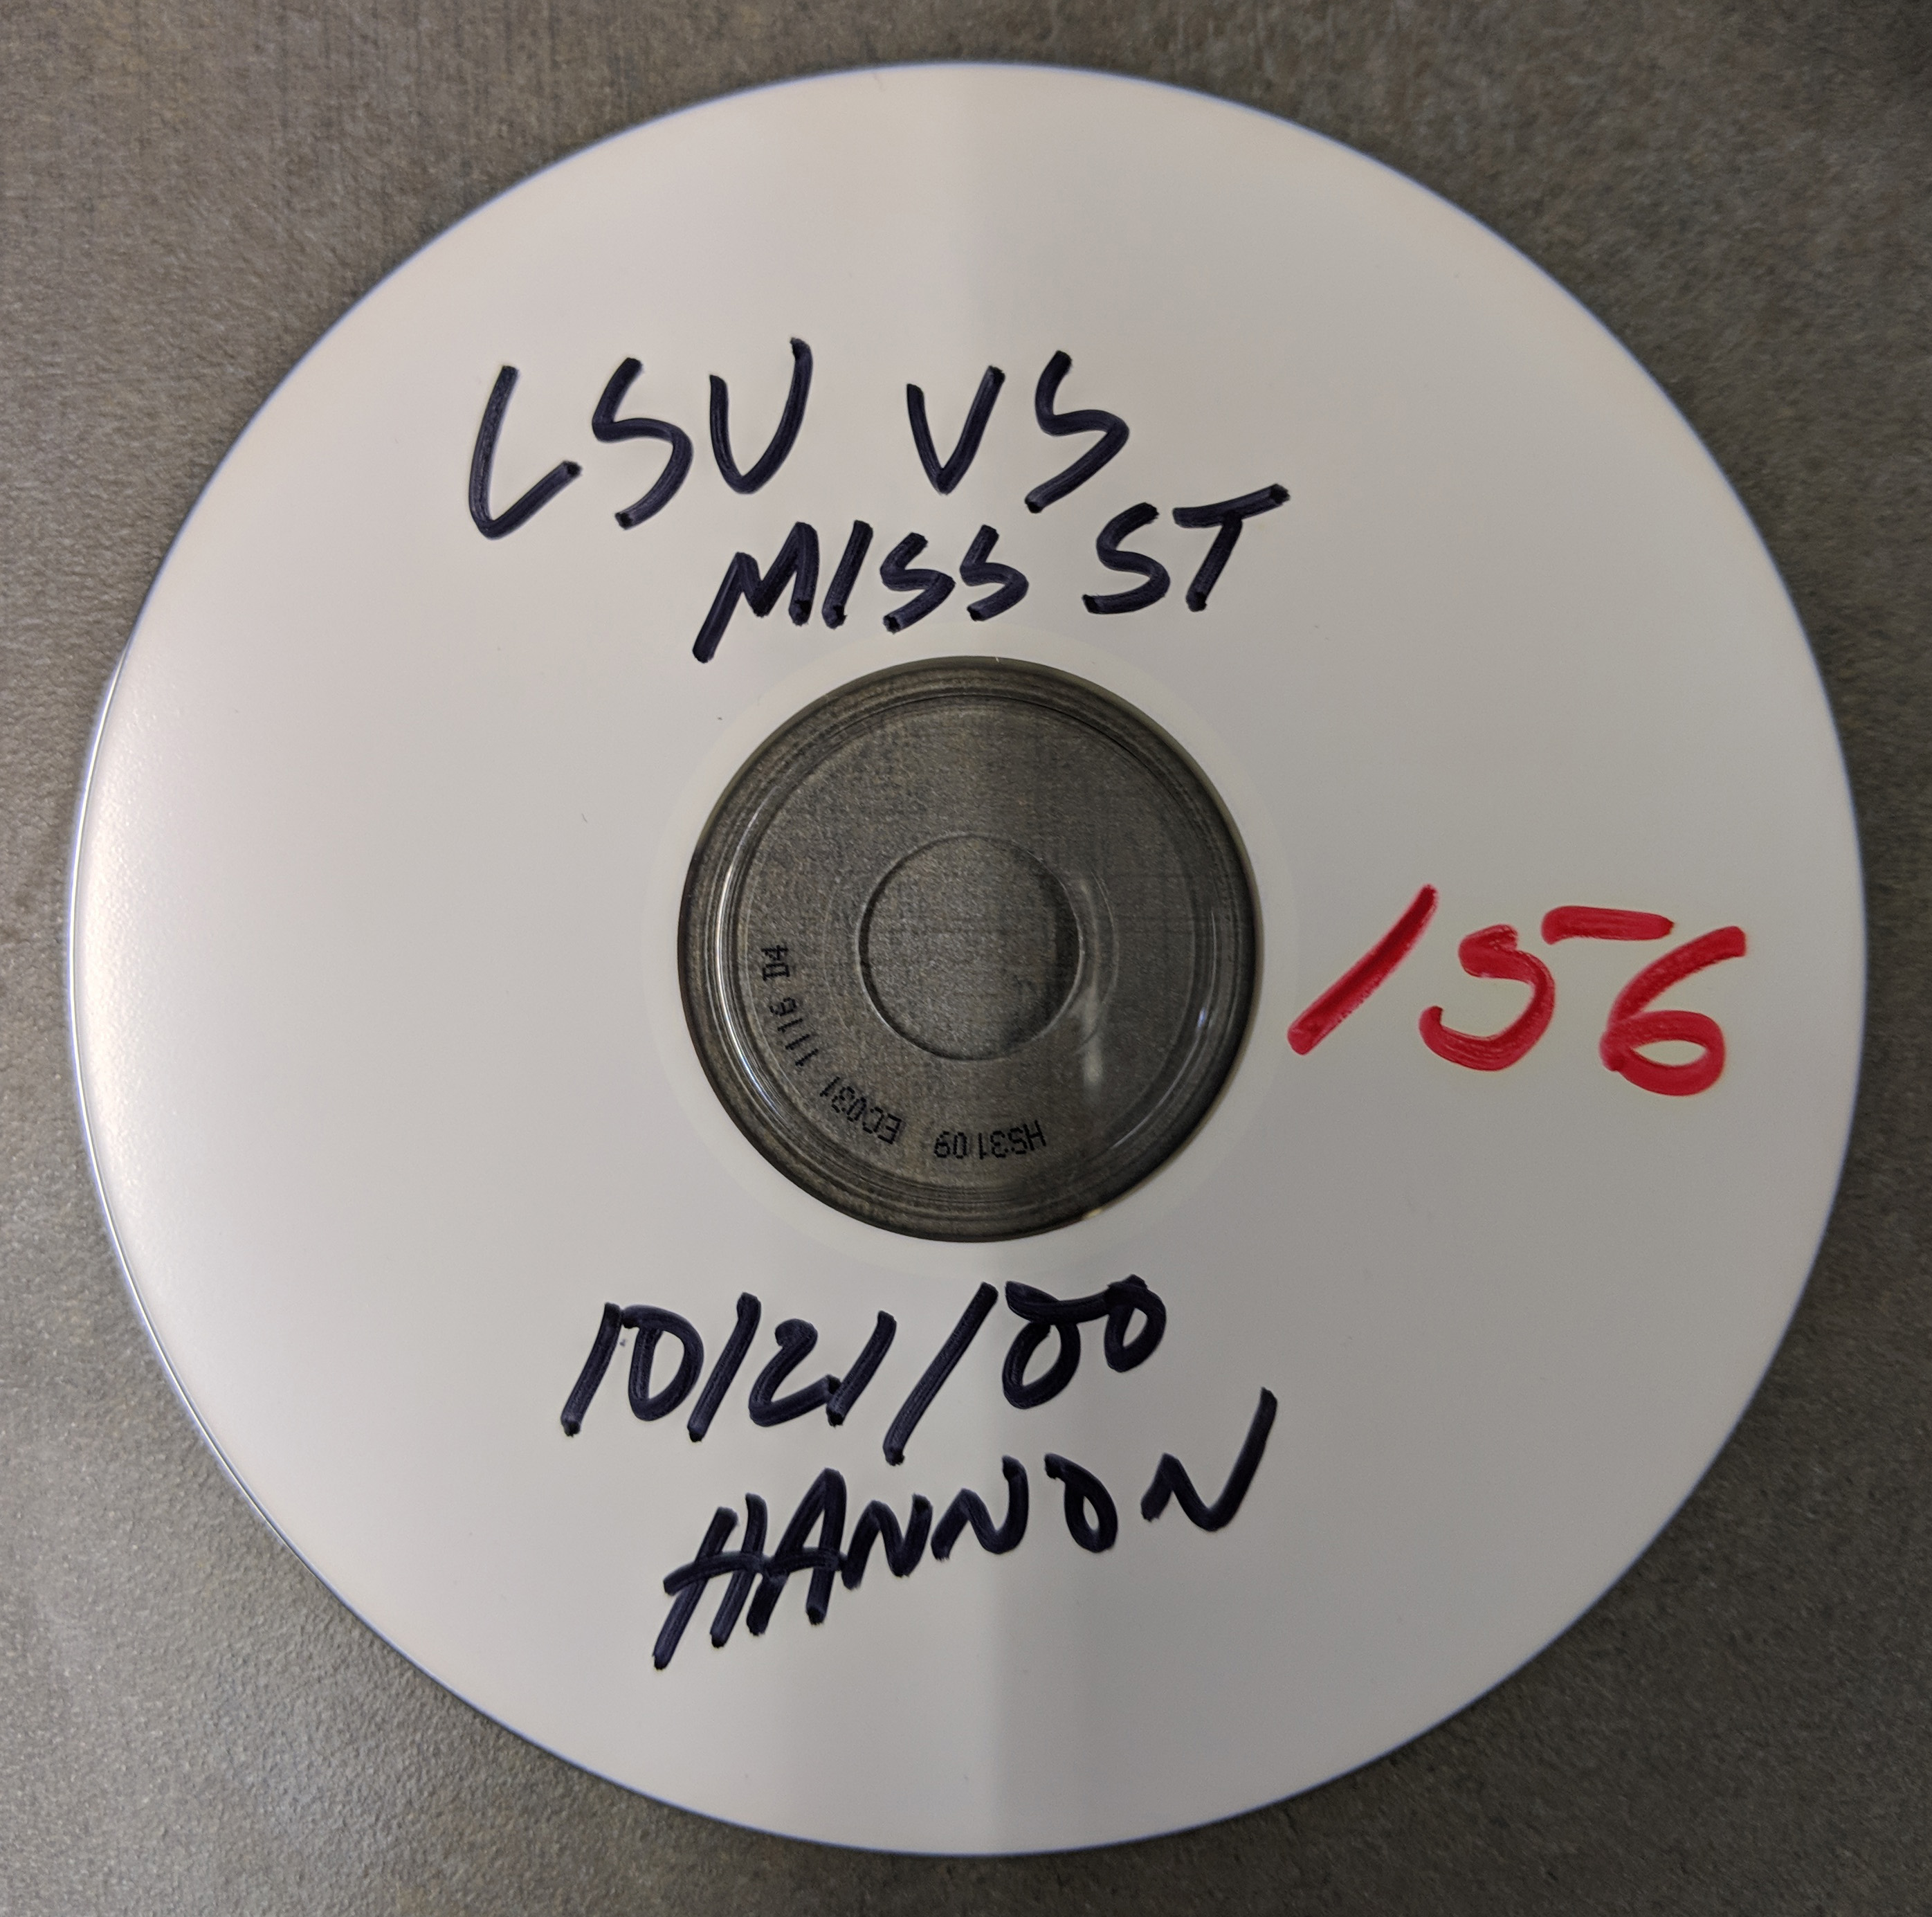 LSU VS
MISS ST
156
HS3109 EC031 1116 D4
10/21/00
HANNON